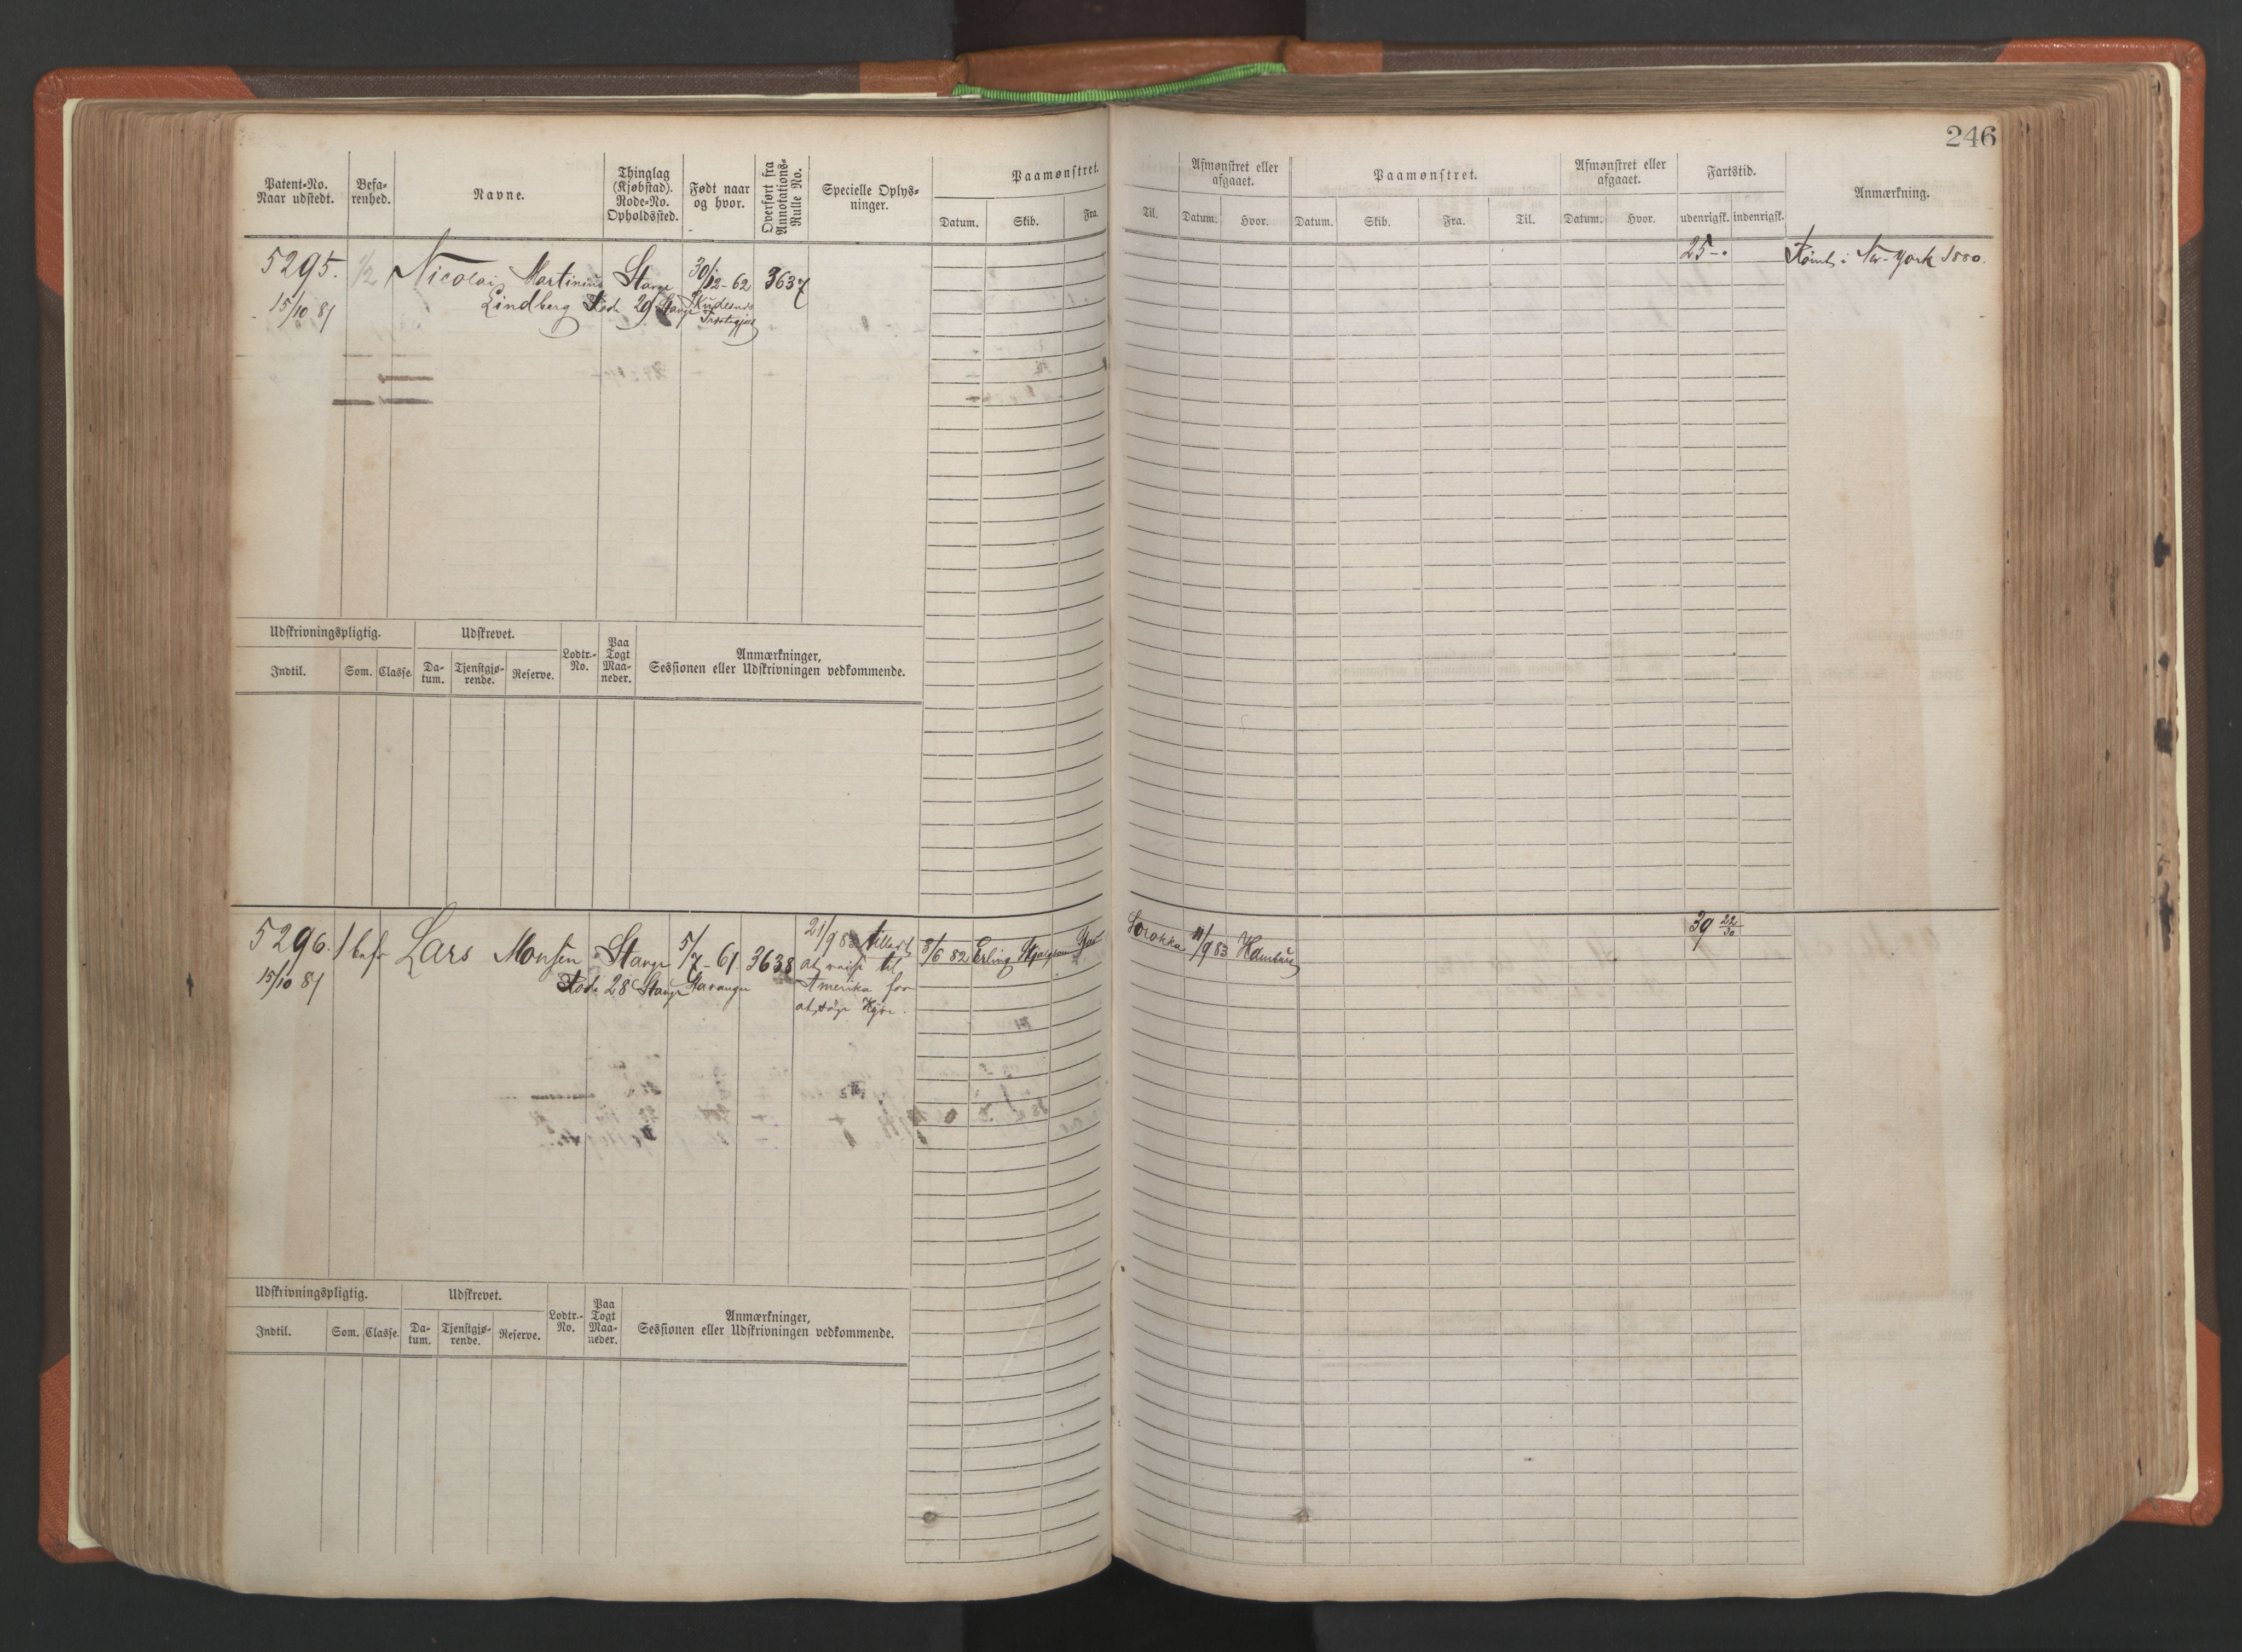 246
Patent-No. Naar udstedt.
Befa-renhed.
Navne.
Thinglag (Kjøbstad). Rode-No. Opholdssted.
Født naar og hvor.
Overført fra Annotations-Rulle No.
Specielle Oplys-ninger.
Paamønstret.
Afmønstret eller afgaaet.
Paamønstret.
Afmønstret eller afgaaet.
Fartstid.
Anmærkning.
Datum. Skib. Fra. Til. Datum. Hvor. Datum. Skib. Fra. Til. Datum. Hvor. udenrigsk. indenrigsk.
5295. 1/2 Nicolai Martinius Stavgr 30/12-62 3637 25-. Rømt i New-York 1880.
15/10 81 Lindberg Rode 29 Stavgr Skudesnes
Præstegjeld
Udskrivningspligtig. Udskrevet. Lodtr.-No. Paa Togt Maa-neder. Anmærkninger, Sessionen eller Udskrivningen vedkommende.
Indtil. Som. Classe. Da-tum. Tjenstgjø-rende. Reserve.
5296. 1 befr Lars Monsen Stavgr 5/7-61 3638 21/9 83 tilladt 3/6 82 Erling 11/9 83 Hamburg 39 22/30
15/10 81 Rode 28 Stavgr Stavanger at reise til
Amerika for
at søge Hyre.
Udskrivningspligtig. Udskrevet. Lodtr.-No. Paa Togt Maa-neder. Anmærkninger, Sessionen eller Udskrivningen vedkommende.
Indtil. Som. Classe. Da-tum. Tjenstgjø-rende. Reserve.